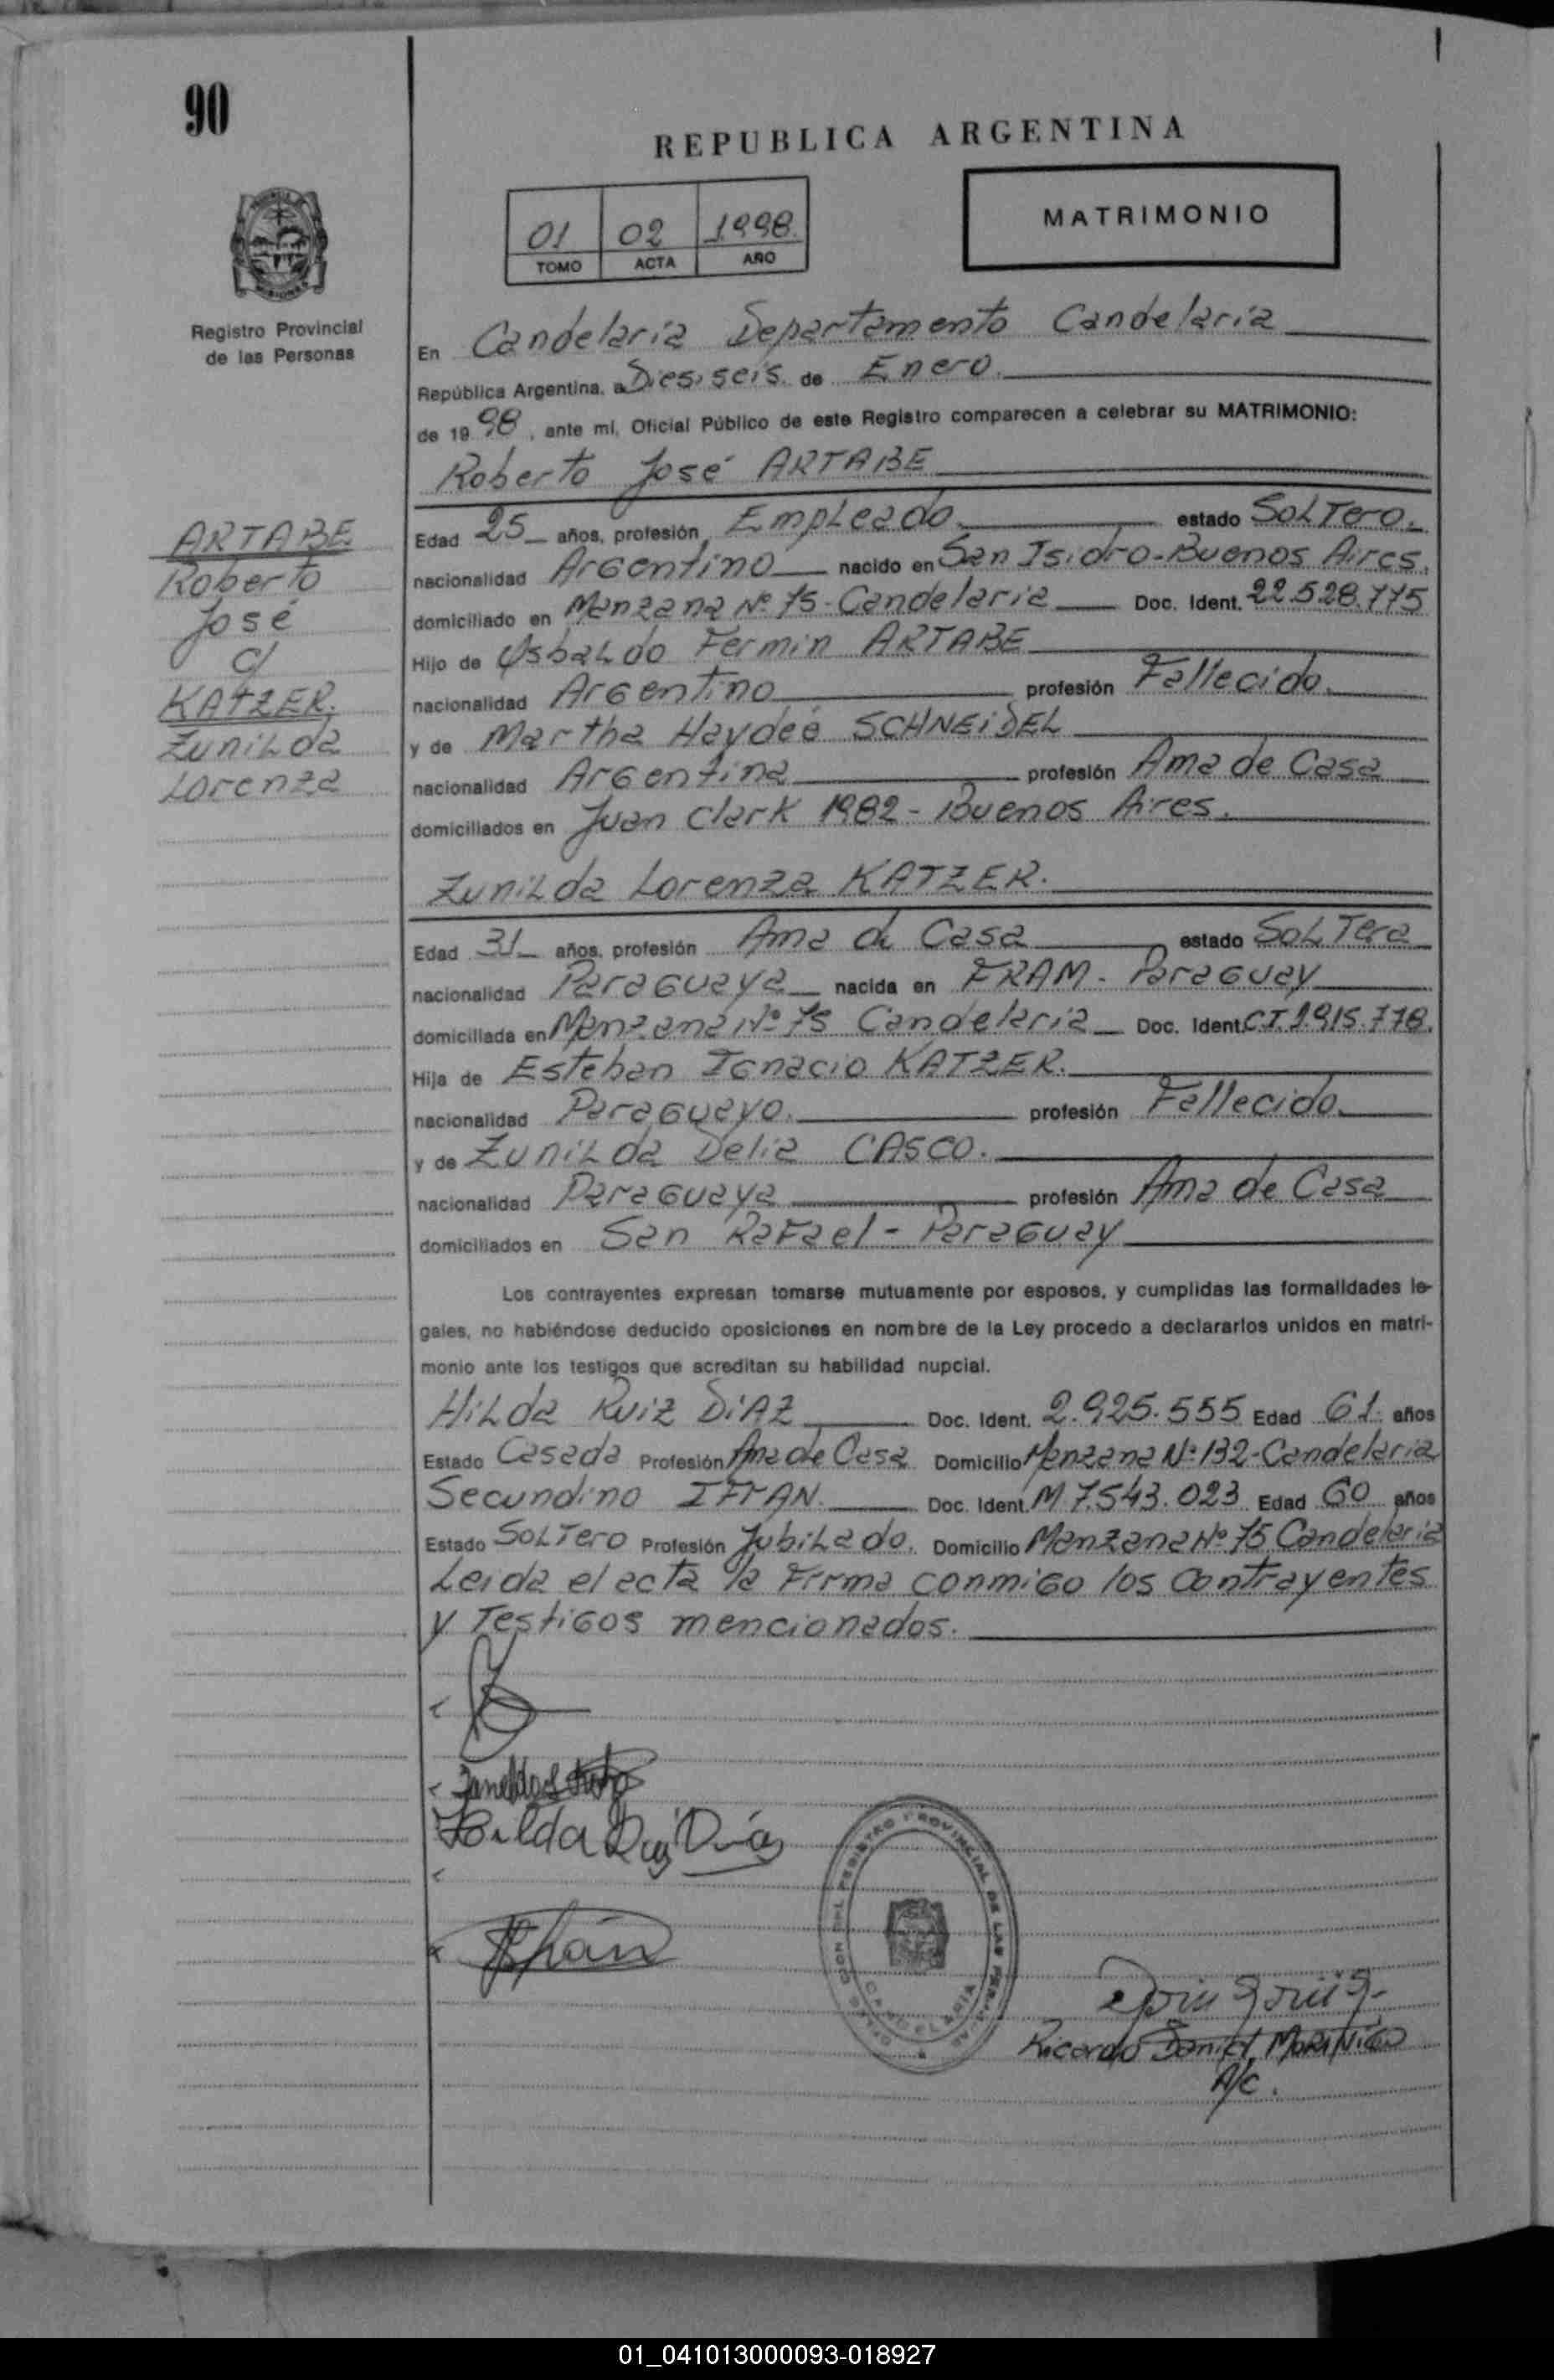 90
REPUBLICA ARGENTINA
01 02 1998.
TOMO ACTA AÑO
MATRIMONIO
Registro Provincial
de las Personas
En Candelaria Departamento Candelaria
República Argentina, a Diesiseis de Enero.
de 19 98, ante mí, Oficial Público de este Registro comparecen a celebrar su MATRIMONIO:
Roberto José ARTABE
ARTABE
Roberto
José
c/
KATZER.
Zunilda
Lorenza
Edad 25 años, profesión Empleado. estado Soltero.
nacionalidad Argentino nacido en San Isidro-Buenos Aires.
domiciliado en Manzana Nº 75-Candelaria Doc. Ident. 22.528.775
Hijo de Osbaldo Fermin ARTABE
nacionalidad Argentino profesión Fallecido.
y de Martha Haydeé SCHNEIDEL
nacionalidad Argentina profesión Ama de Casa
domiciliados en Juan Clark 1982- Buenos Aires.
Zunilda Lorenza KATZER.
Edad 31 años, profesión Ama de Casa estado Soltera
nacionalidad Paraguaya nacida en FRAM- Paraguay
domiciliada en Manzana Nº 75 Candelaria Doc. Ident. C.I. 1.915.778.
Hija de Esteban Ignacio KATZER.
nacionalidad Paraguayo. profesión Fallecido.
y de Zunilda Delia CASCO.
nacionalidad Paraguaya profesión Ama de Casa
domiciliados en San Rafael - Paraguay
Los contrayentes expresan tomarse mutuamente por esposos, y cumplidas las formalidades le-
gales, no habiéndose deducido oposiciones en nombre de la Ley procedo a declararlos unidos en matri-
monio ante los testigos que acreditan su habilidad nupcial.
Hilda Ruiz DiAZ Doc. Ident. 2.925.555 Edad 61 años
Estado Casada Profesión Ama de Casa Domicilio Manzana Nº 132-Candelaria
Secundino IFRAN. Doc. Ident. M 7.543.023 Edad 60 años
Estado Soltero Profesión Jubilado. Domicilio Manzana Nº 75 Candelaria
Leida el acta la Firma conmigo los contrayentes
y Testigos mencionados.
Hilda Ruiz Diaz
REGISTRO PROVINCIAL DE LAS
CANDELARIA
Ricardo Daniel MORINIGO
A/C.
01_041013000093-018927